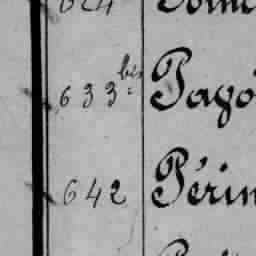 624
633 bis Pagó
642 Périn